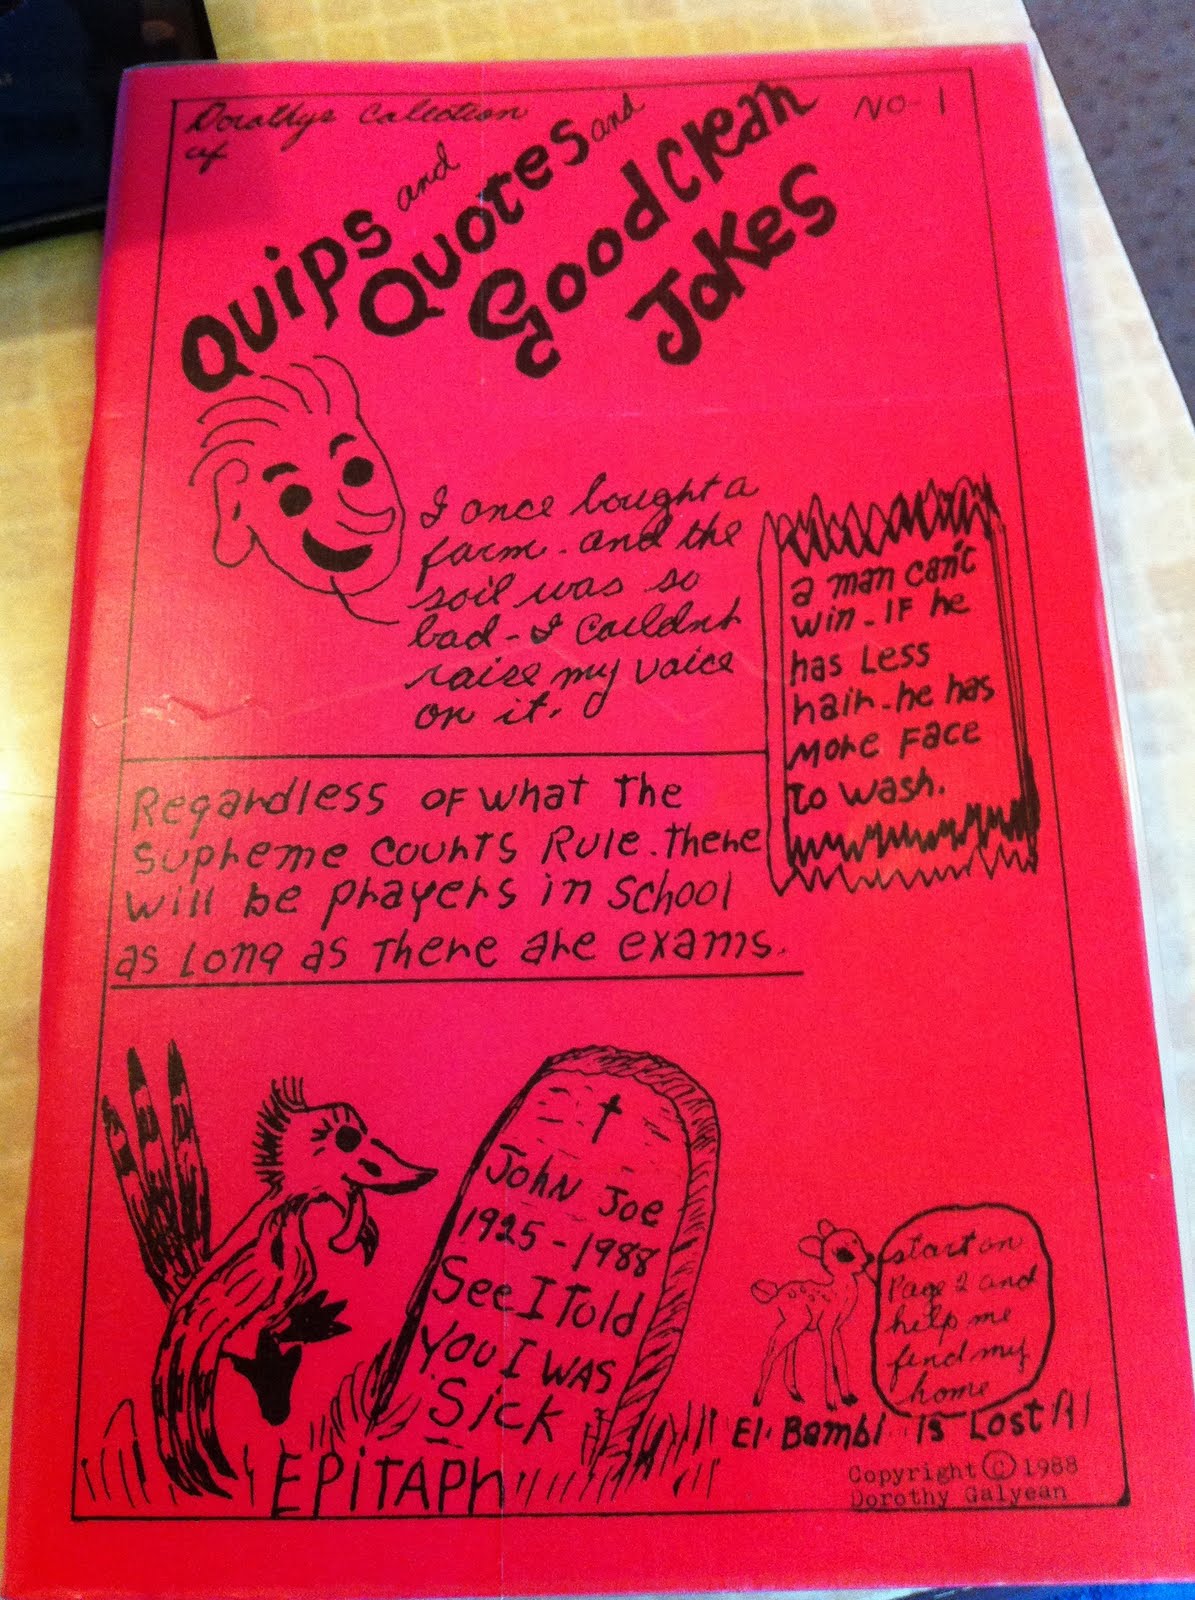 Dorothys Collection NO-1
of
Quips and
Quotes and
Good Clean
Jokes
I once bought a
farm - and the
soil was so
bad - I couldnt
raise my voice
on it.
a man can't
win - IF he
has Less
hair - he has
More Face
To wash.
Regardless OF what The
Supreme Courts Rule. There
will be prayers in School
as Long as There are exams.
John Joe
1925 - 1988
See I Told
You I was
Sick
EPITAPh
start on
Page 2 and
help me
find my
home
El. Bambi Is Lost
Copyright © 1988
Dorothy Galyean